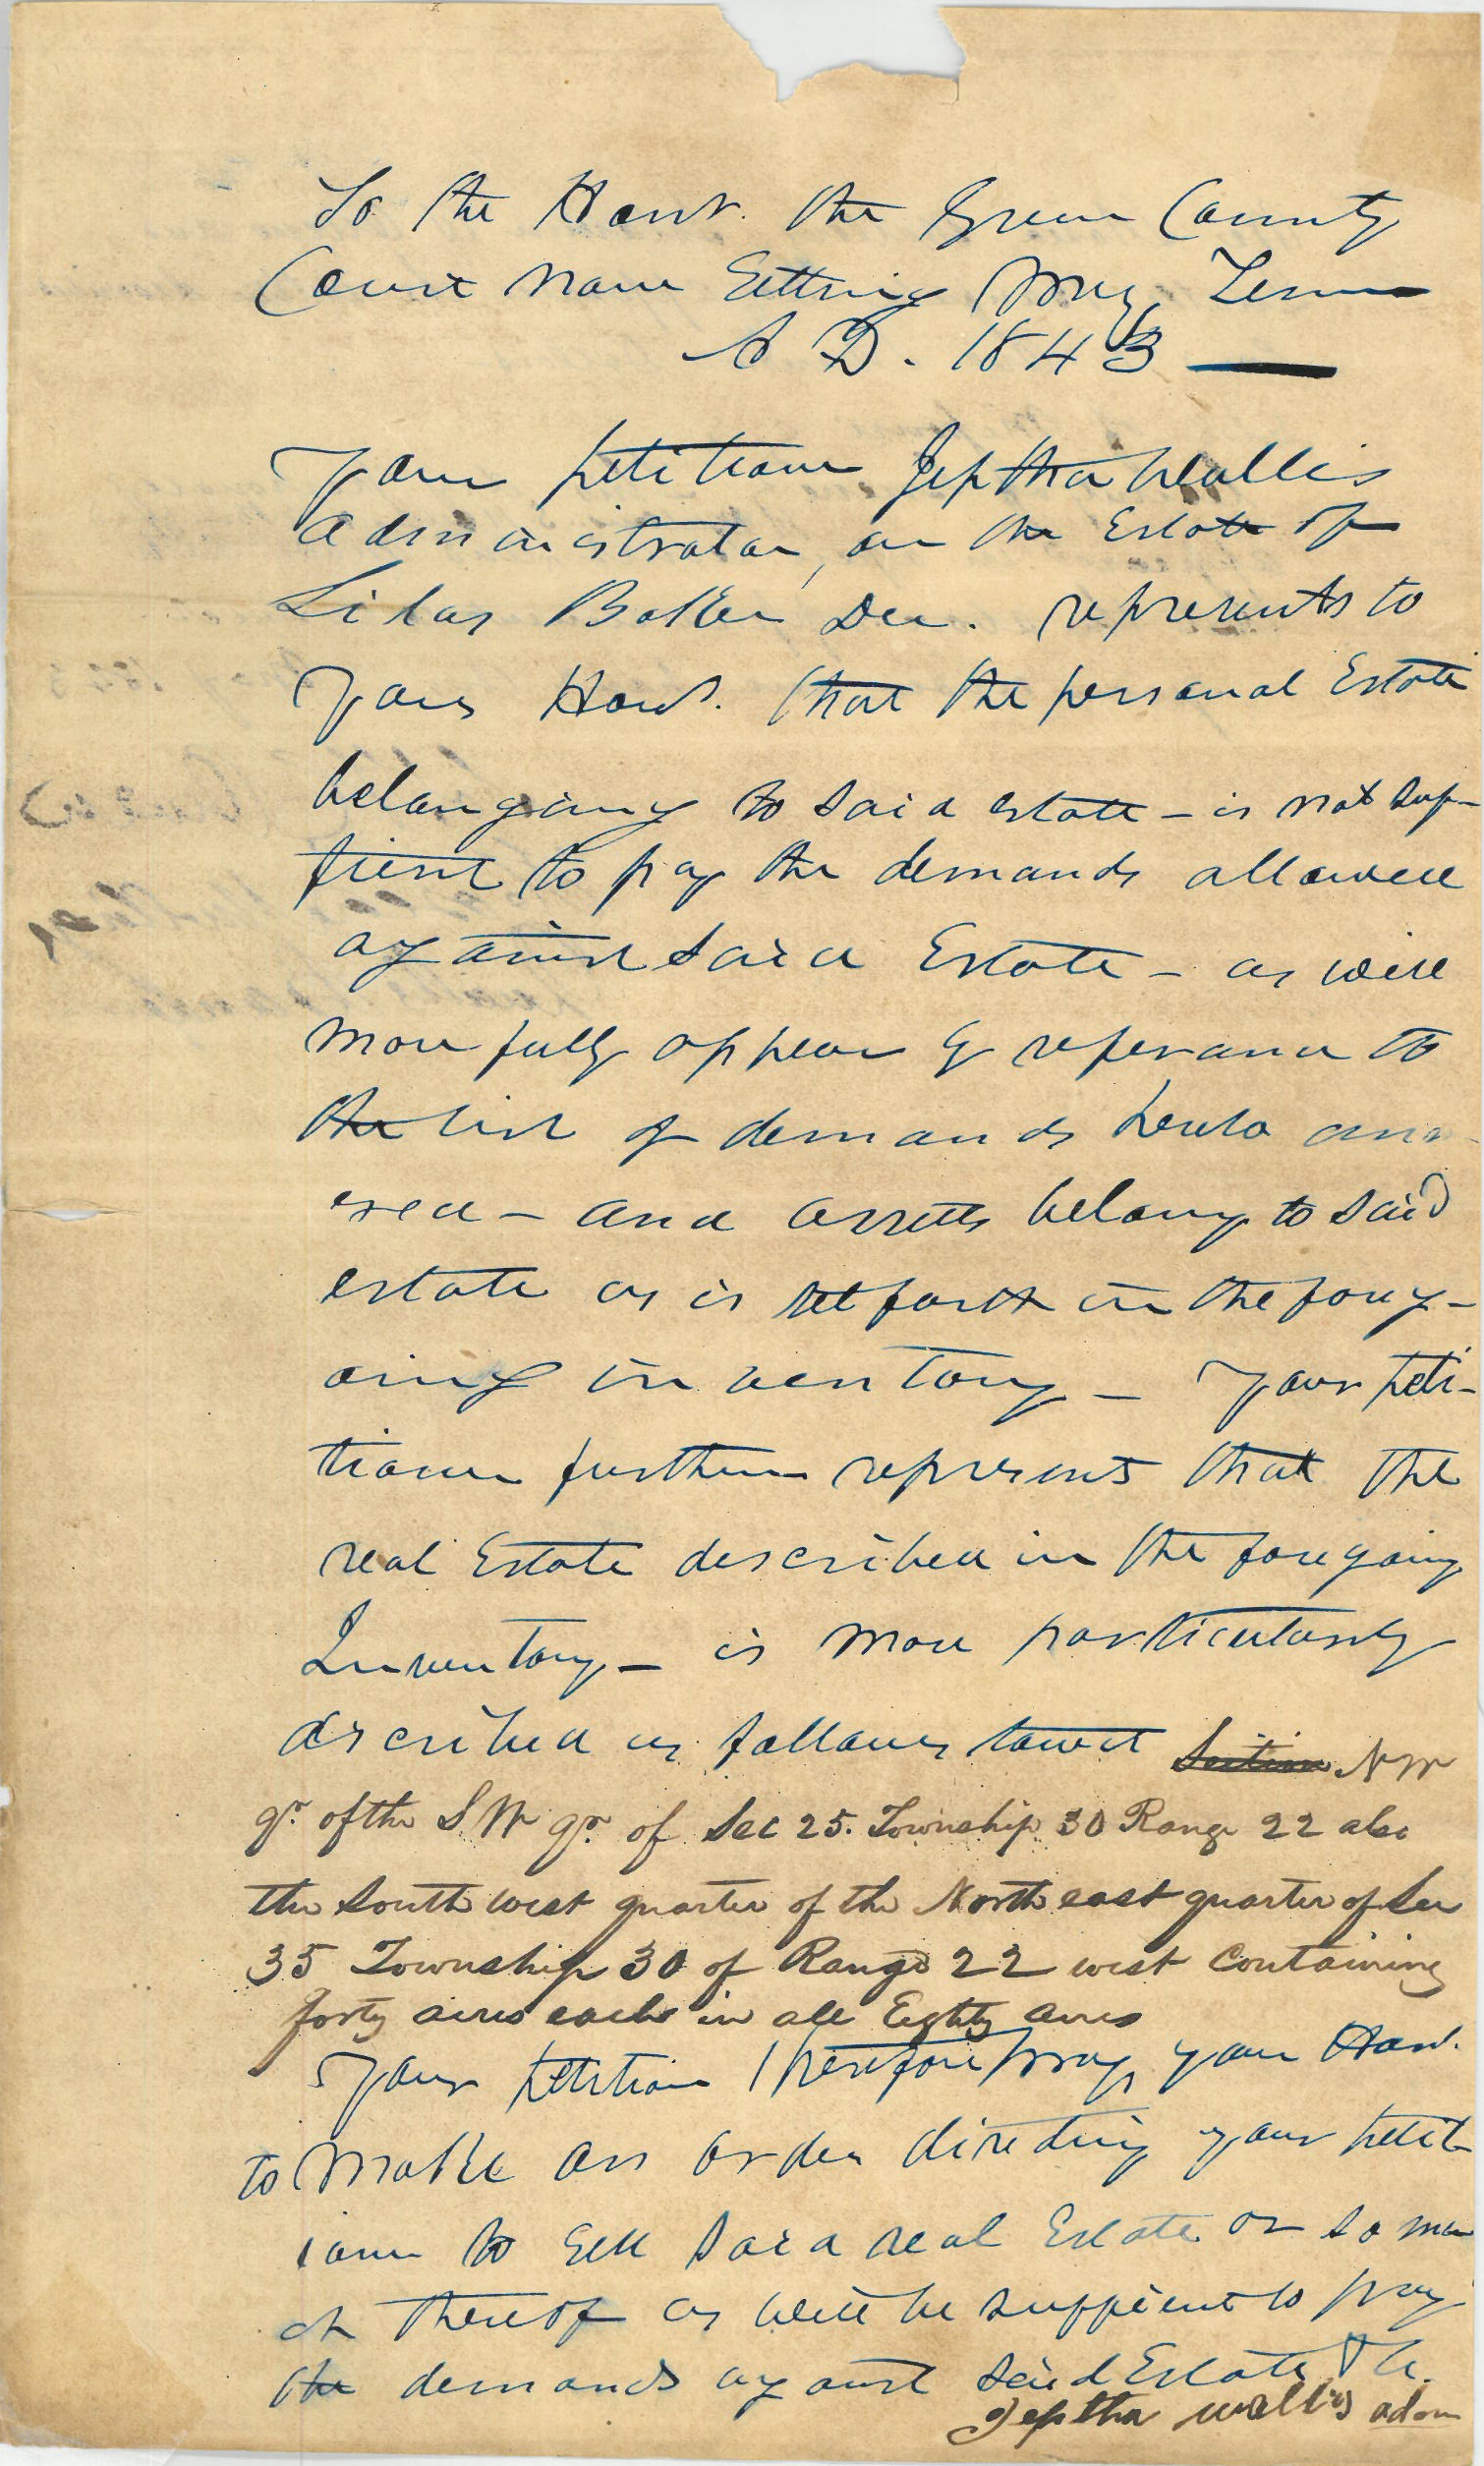 To the Honr. the Green County
Court Now Setting May Term
A D. 1843
Your petitioner Jeptha Wallis
administrator, on the Estate of
Silas Baker Dec. represents to
Your Honr. that the personal Estate
belonging to said estate - is not suf-
ficient to pay the demands allowed
against said Estate - as will
more fully appear by referance to
the list of demands hereto ann-
exed - and assetts belong to said
estate as is set forth in the foreg-
oing inventory - Your peti-
tioner further represents that the
real Estate described in the foregoing
Inventory - is more particularly
described as follows towit Section N W
qr. of the S W qr. of Sec 25. Township 30 Range 22 also
the South west quarter of the North east quarter of Sec
35 Township 30 of Range 22 west Containing
forty acres each in all Eighty acres
Your petition therefore pray your Hon.
to Make an order directing your petit-
ioner to Sell said real Estate or so mu
ch thereof as will be suffient to pay
the demands against said Estate &c.
Jeptha wallis adm